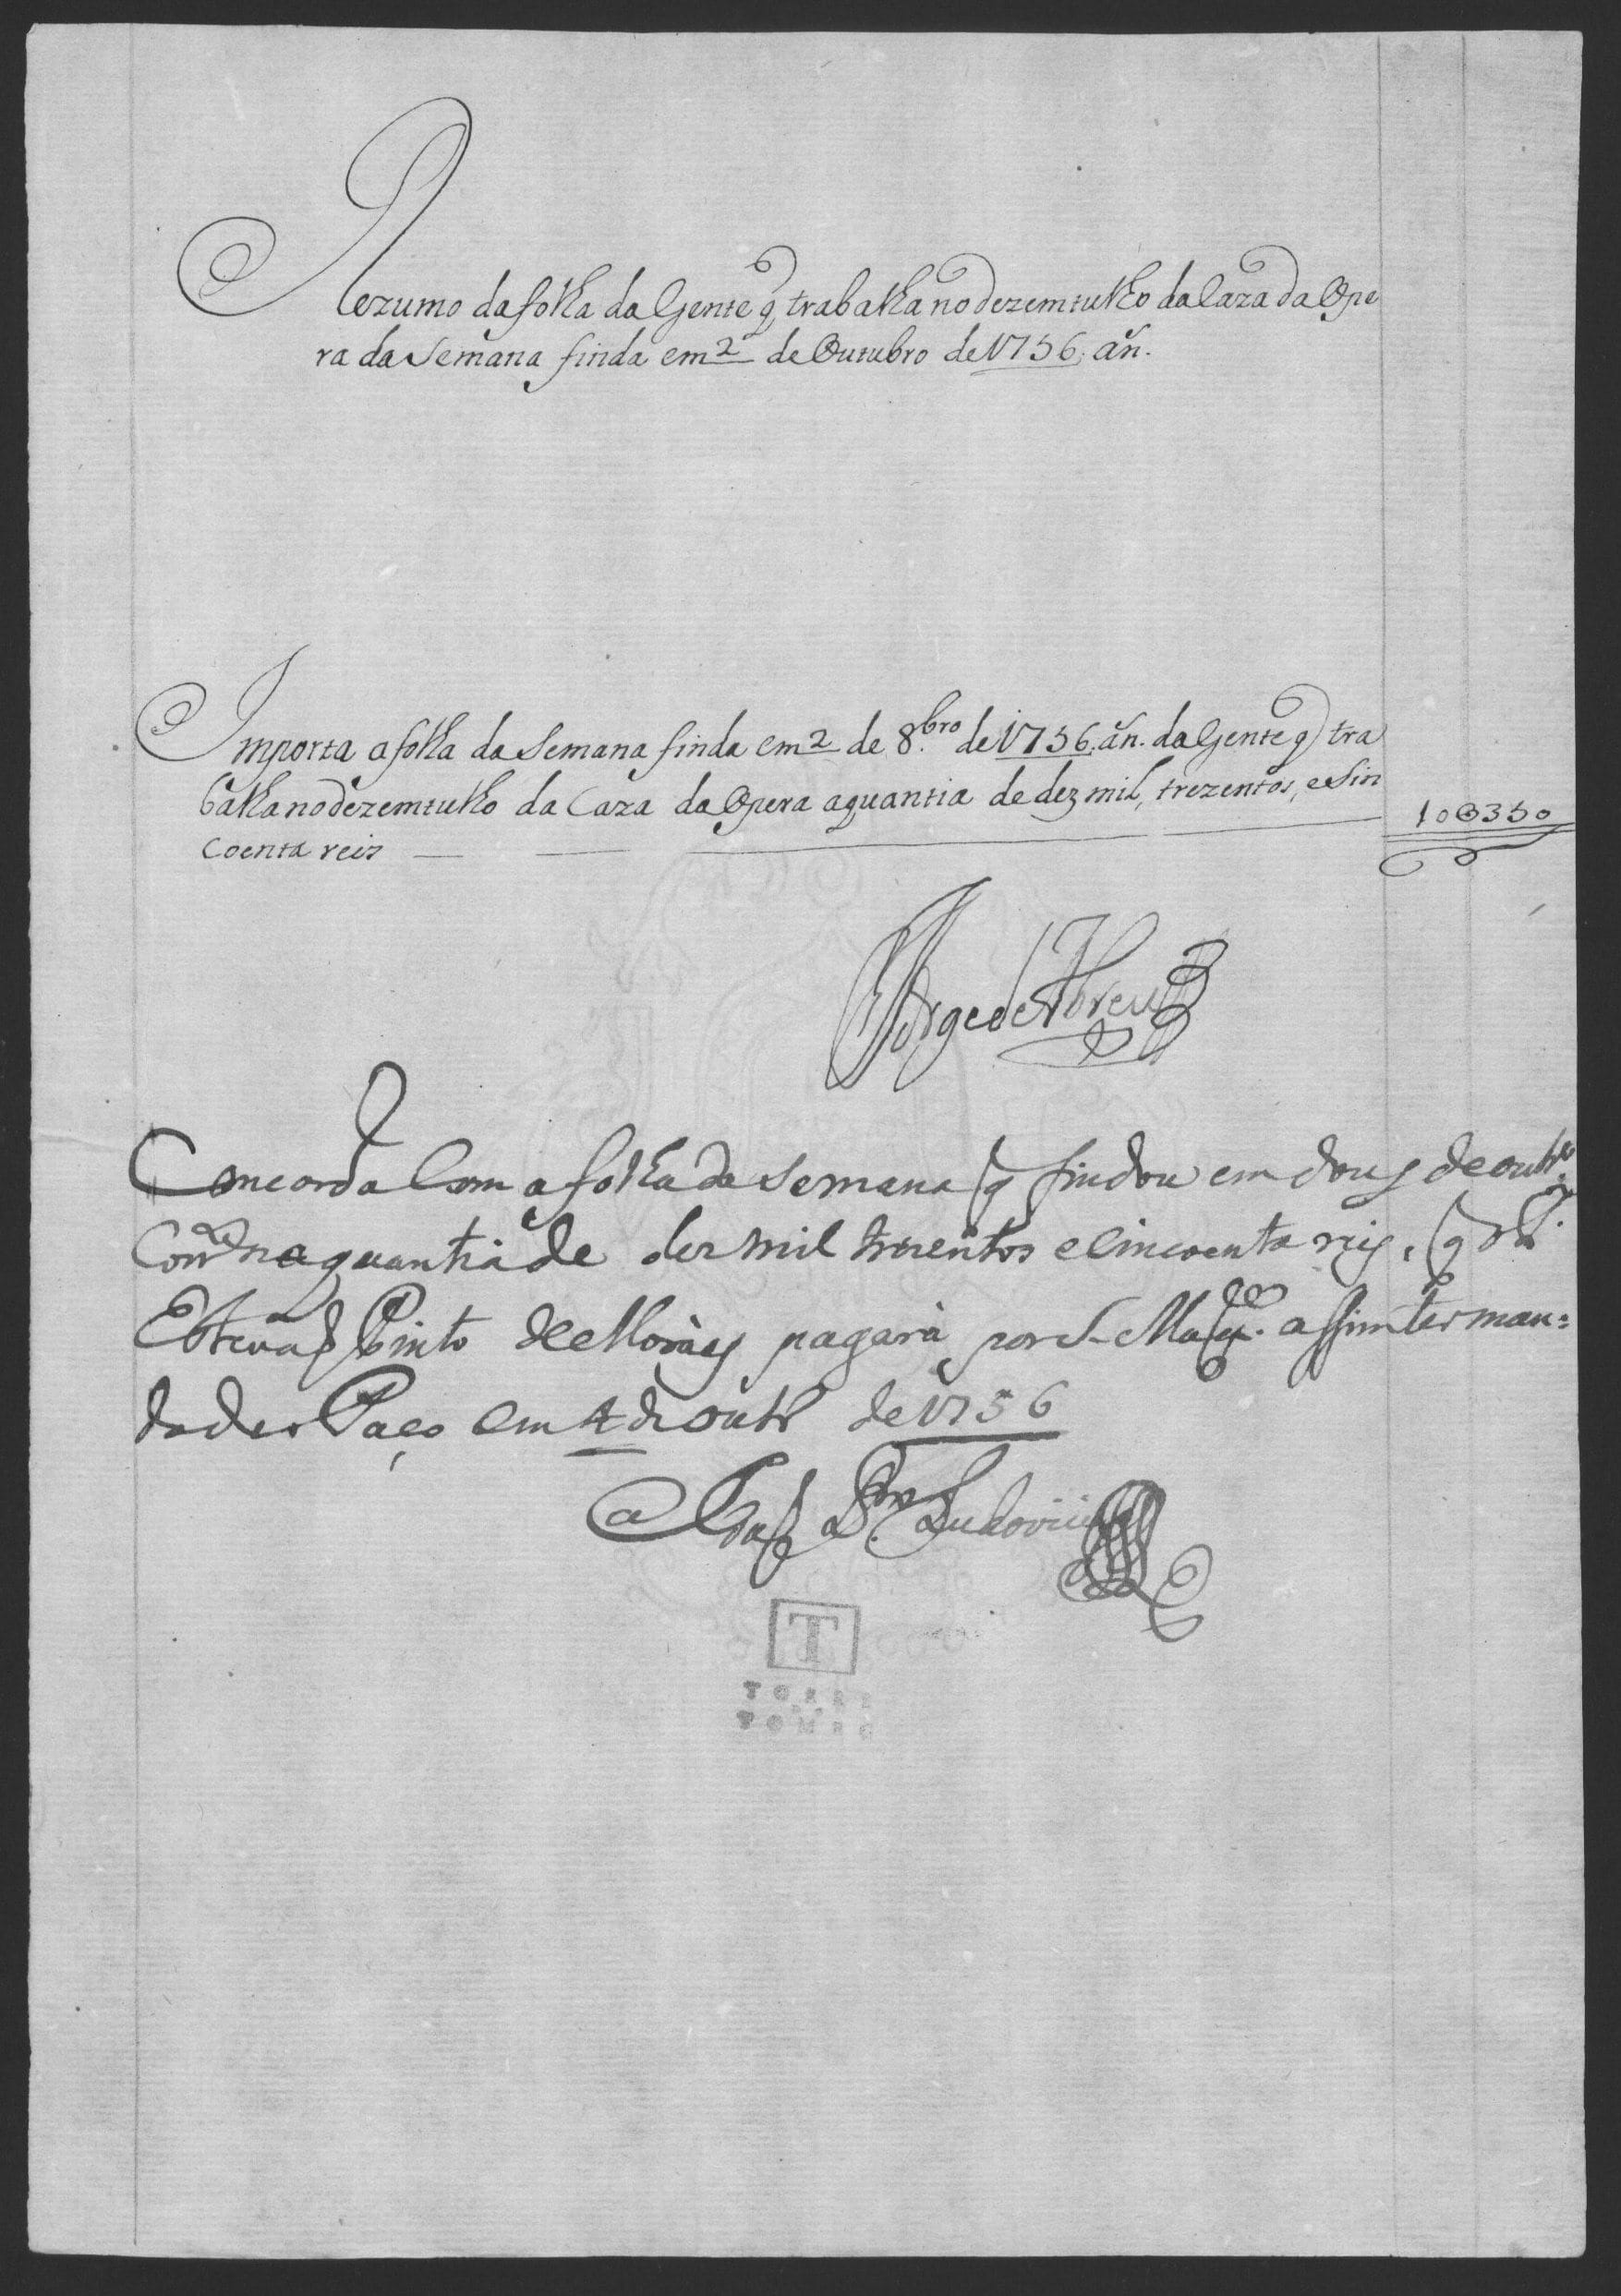 Rezumo da folha da Gente q trabalha no dezemtulho da Caza da Ope
ra da Semana finda em 2 de Outubro de 1756. an.
Importa a folha da Semana finda em 2 de 8.bro de 1756. an. da Gente q tra
balha no dezemtulho da Caza da Opera a quantia de dez mil, trezentos, e Sin
coenta reis
10@350
Jorge de Abreu
Concorda Com a folha da Semana q findou em dous de outbr.º
na quantia de des mil trezentos e cincoenta reis, q
Estevaõ Pinto de Moraes pagará por S. Mag.de assim ter man=
dado Paço em 4 de outbr de 1756
Ludovici
T
TORRE
DO
TOMBO